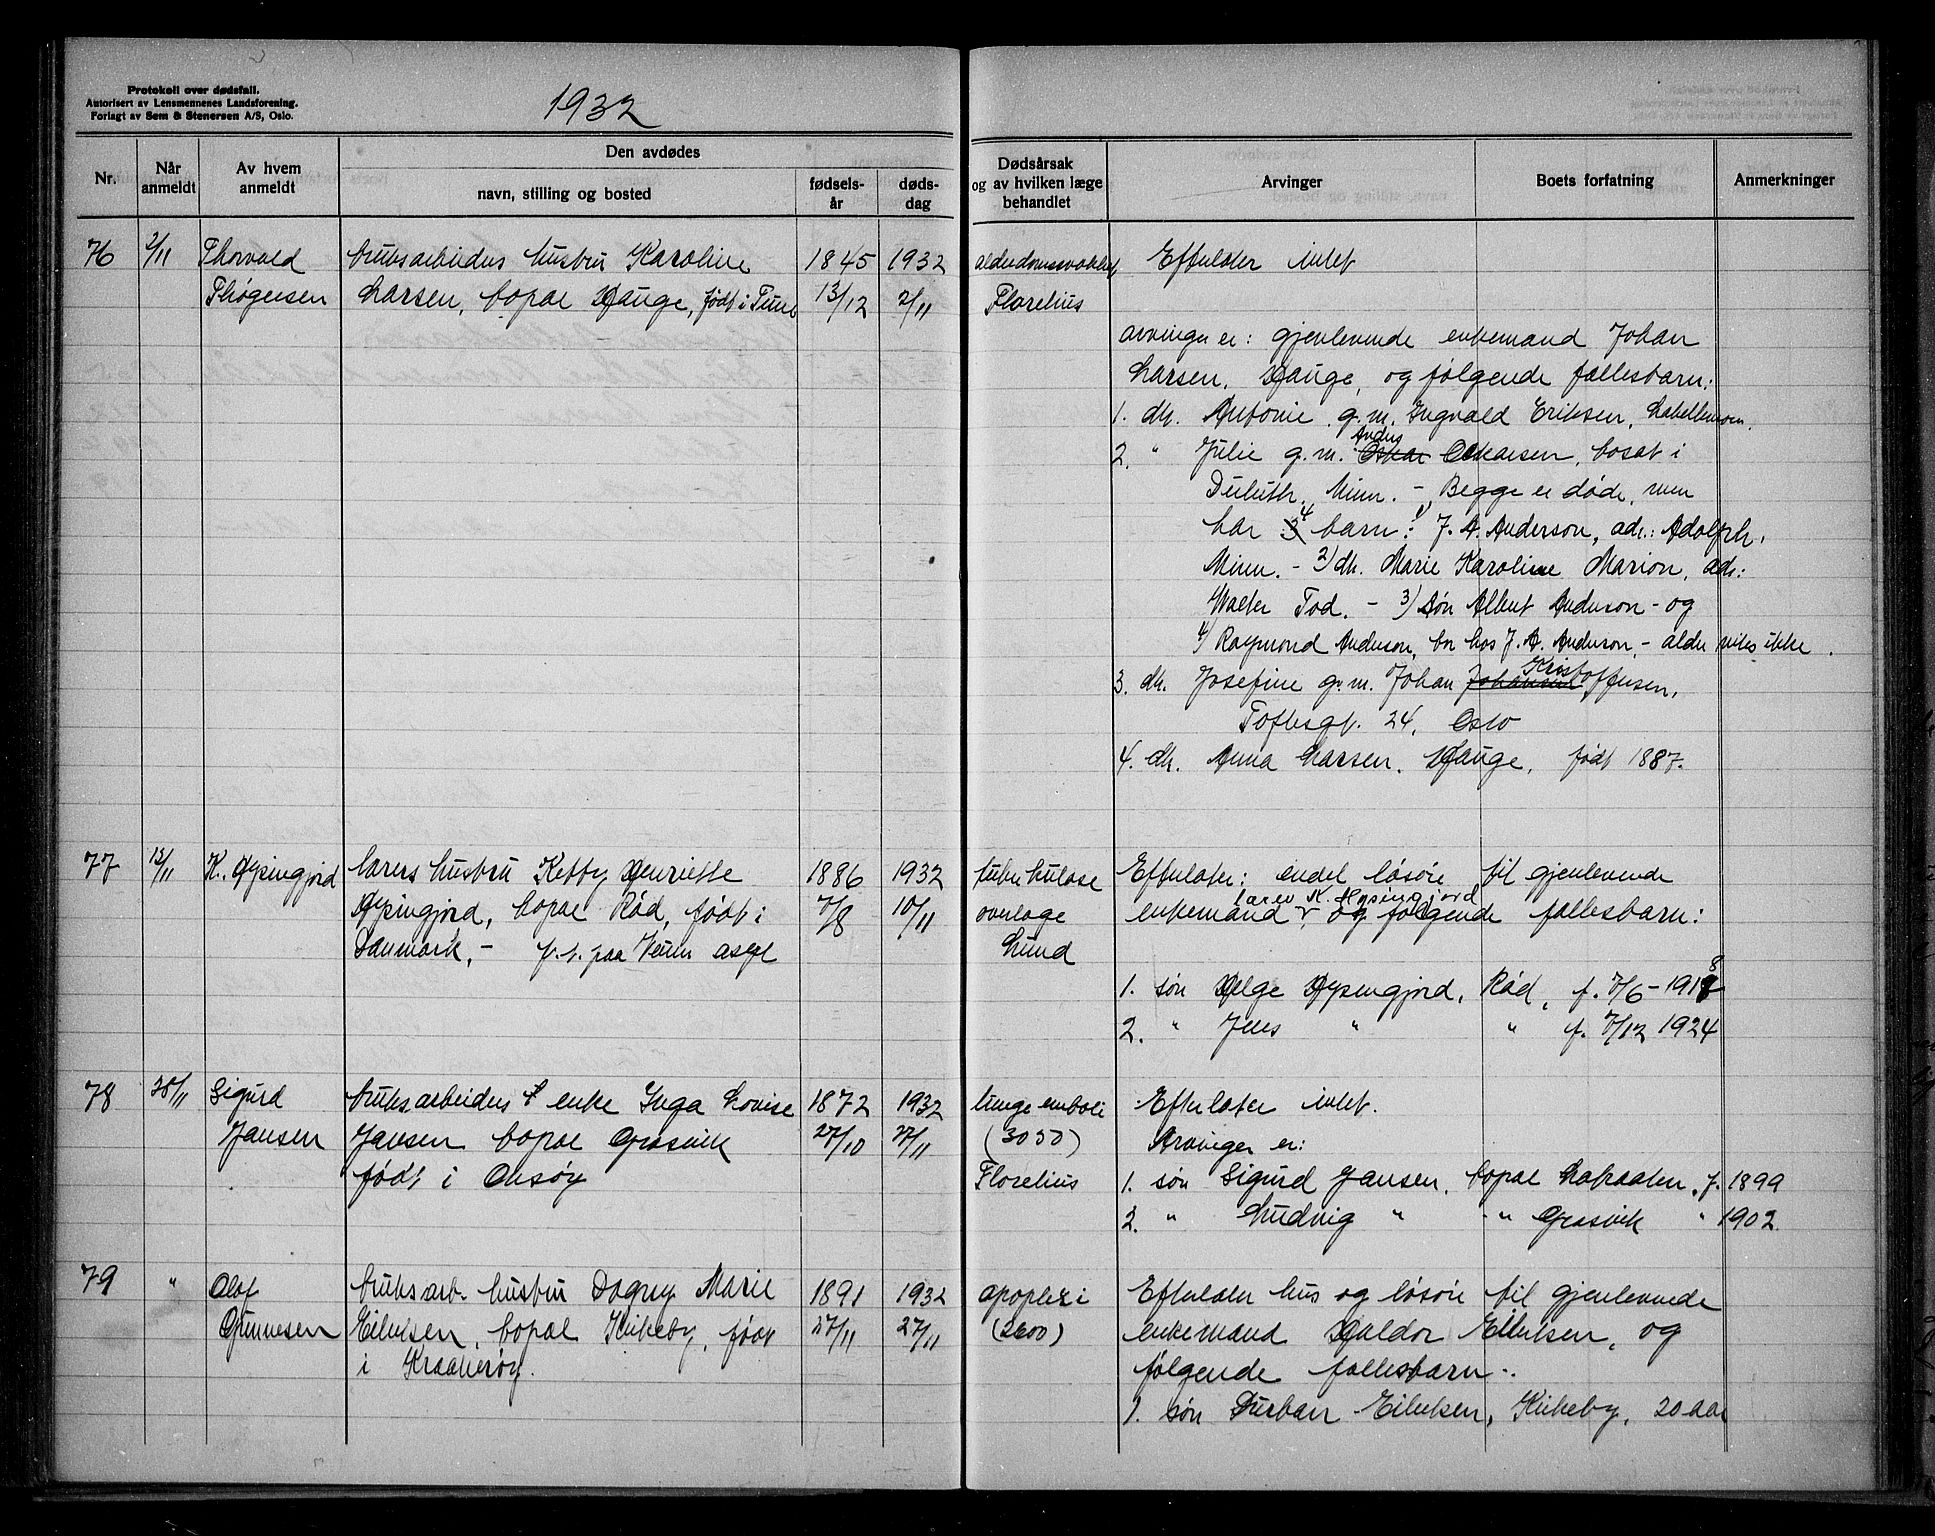 Protokoll over dødsfall.
Autorisert av Lensmennenes Landsforening.
Forlagt av Sem & Stenersen A/S, Oslo.
1932
Nr.
Når anmeldt
Av hvem anmeldt
Den avdødes
navn, stilling og bosted
fødsels-år
døds-dag
Dødsårsak og av hvilken læge behandlet
Arvinger
Boets forfatning
Anmerkninger
76 2/11 Thorvald bruksarbeiders hustru Karoline 1845 1932 alderdomssvakhet Efterlater intet
Thøgersen Larsen, bopæl Hauge, født i Tune 13/12 2/11 Florelius
arvinger er: gjenlevende enkemand Johan
Larsen, Hauge, og følgende fællesbarn:
1. dtr. Antonie g.m. Ingvald Eriksen,
2. " Julie g.m. Oskar Anders Oskarsen, bosat i
Duluth, Minn. - Begge er døde, men
har 3 4 barn: 1) J. A. Anderson, adr.: Adolph,
Minn. - 2) dtr. Marie Karoline Marion, adr:
Walter Tod. - 3) søn Albert Anderson - og
4) Raymond Anderson, bor hos J. A. Anderson, - alder vites ikke.
3. dtr. Josefine g.m. Johan Johansen Kristoffersen,
Toftesgt. 24, Oslo
4. dtr. Anna Larsen, Hauge, født 1887.
77 12/11 K. Hysingjord lærers hustru Ketty Henriette 1886 1932 tuberkulose Efterlater: endel løsøre til gjenlevende
Hysingjord, bopæl Rød, født i 7/8 10/11 overlæge enkemand lærer K. Hysingjord, og følgende fællesbarn:
Danmark, - p.t. paa Veum asyl Lund
1. søn Helge Hysingjord, Rød, f. 7/6 - 1918
2. " Jens " " f. 7/12 1924
78 28/11 Sigurd bruksarbeiders enke Inga Lovise 1872 1932 lungeemboli Efterlater intet.
Jansen Jansen bopæl Gressvik 27/10 27/11 (3050) Arvinger er:
født i Onsøy Florelius 1. søn Sigurd Jansen, bopæl f. 1899
2. " Ludvig " " Gressvik " 1902
79 " Olaf bruksarb. hustru Dagny Marie 1891 1932 apoplexi Efterlater hus og løsøre til gjenlevende
Gunnesen Eilertsen, bopæl Kirkeby, født 27/11 27/11 (2600) enkemand Haldor Eilertsen, og
i Kraakerøy. følgende fællesbarn:
1. søn Durban Eilertsen, Kirkeby, 20 aar